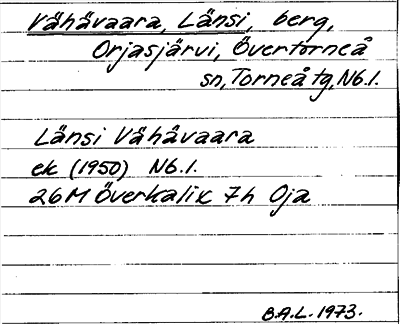 Vähävaara, Länsi, berg,
Orjasjärvi, Övertorneå
sn, Torneå tg, Nb.l.
Länsi Vähävaara
ek (1950) Nb.l.
26M Överkalix 7h Oja
B.A.L. 1973.